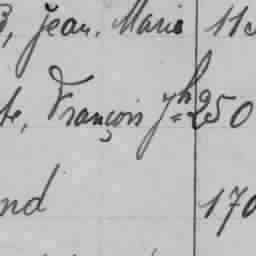 Jean. Marie 11
te, François Jh 250
nd 170